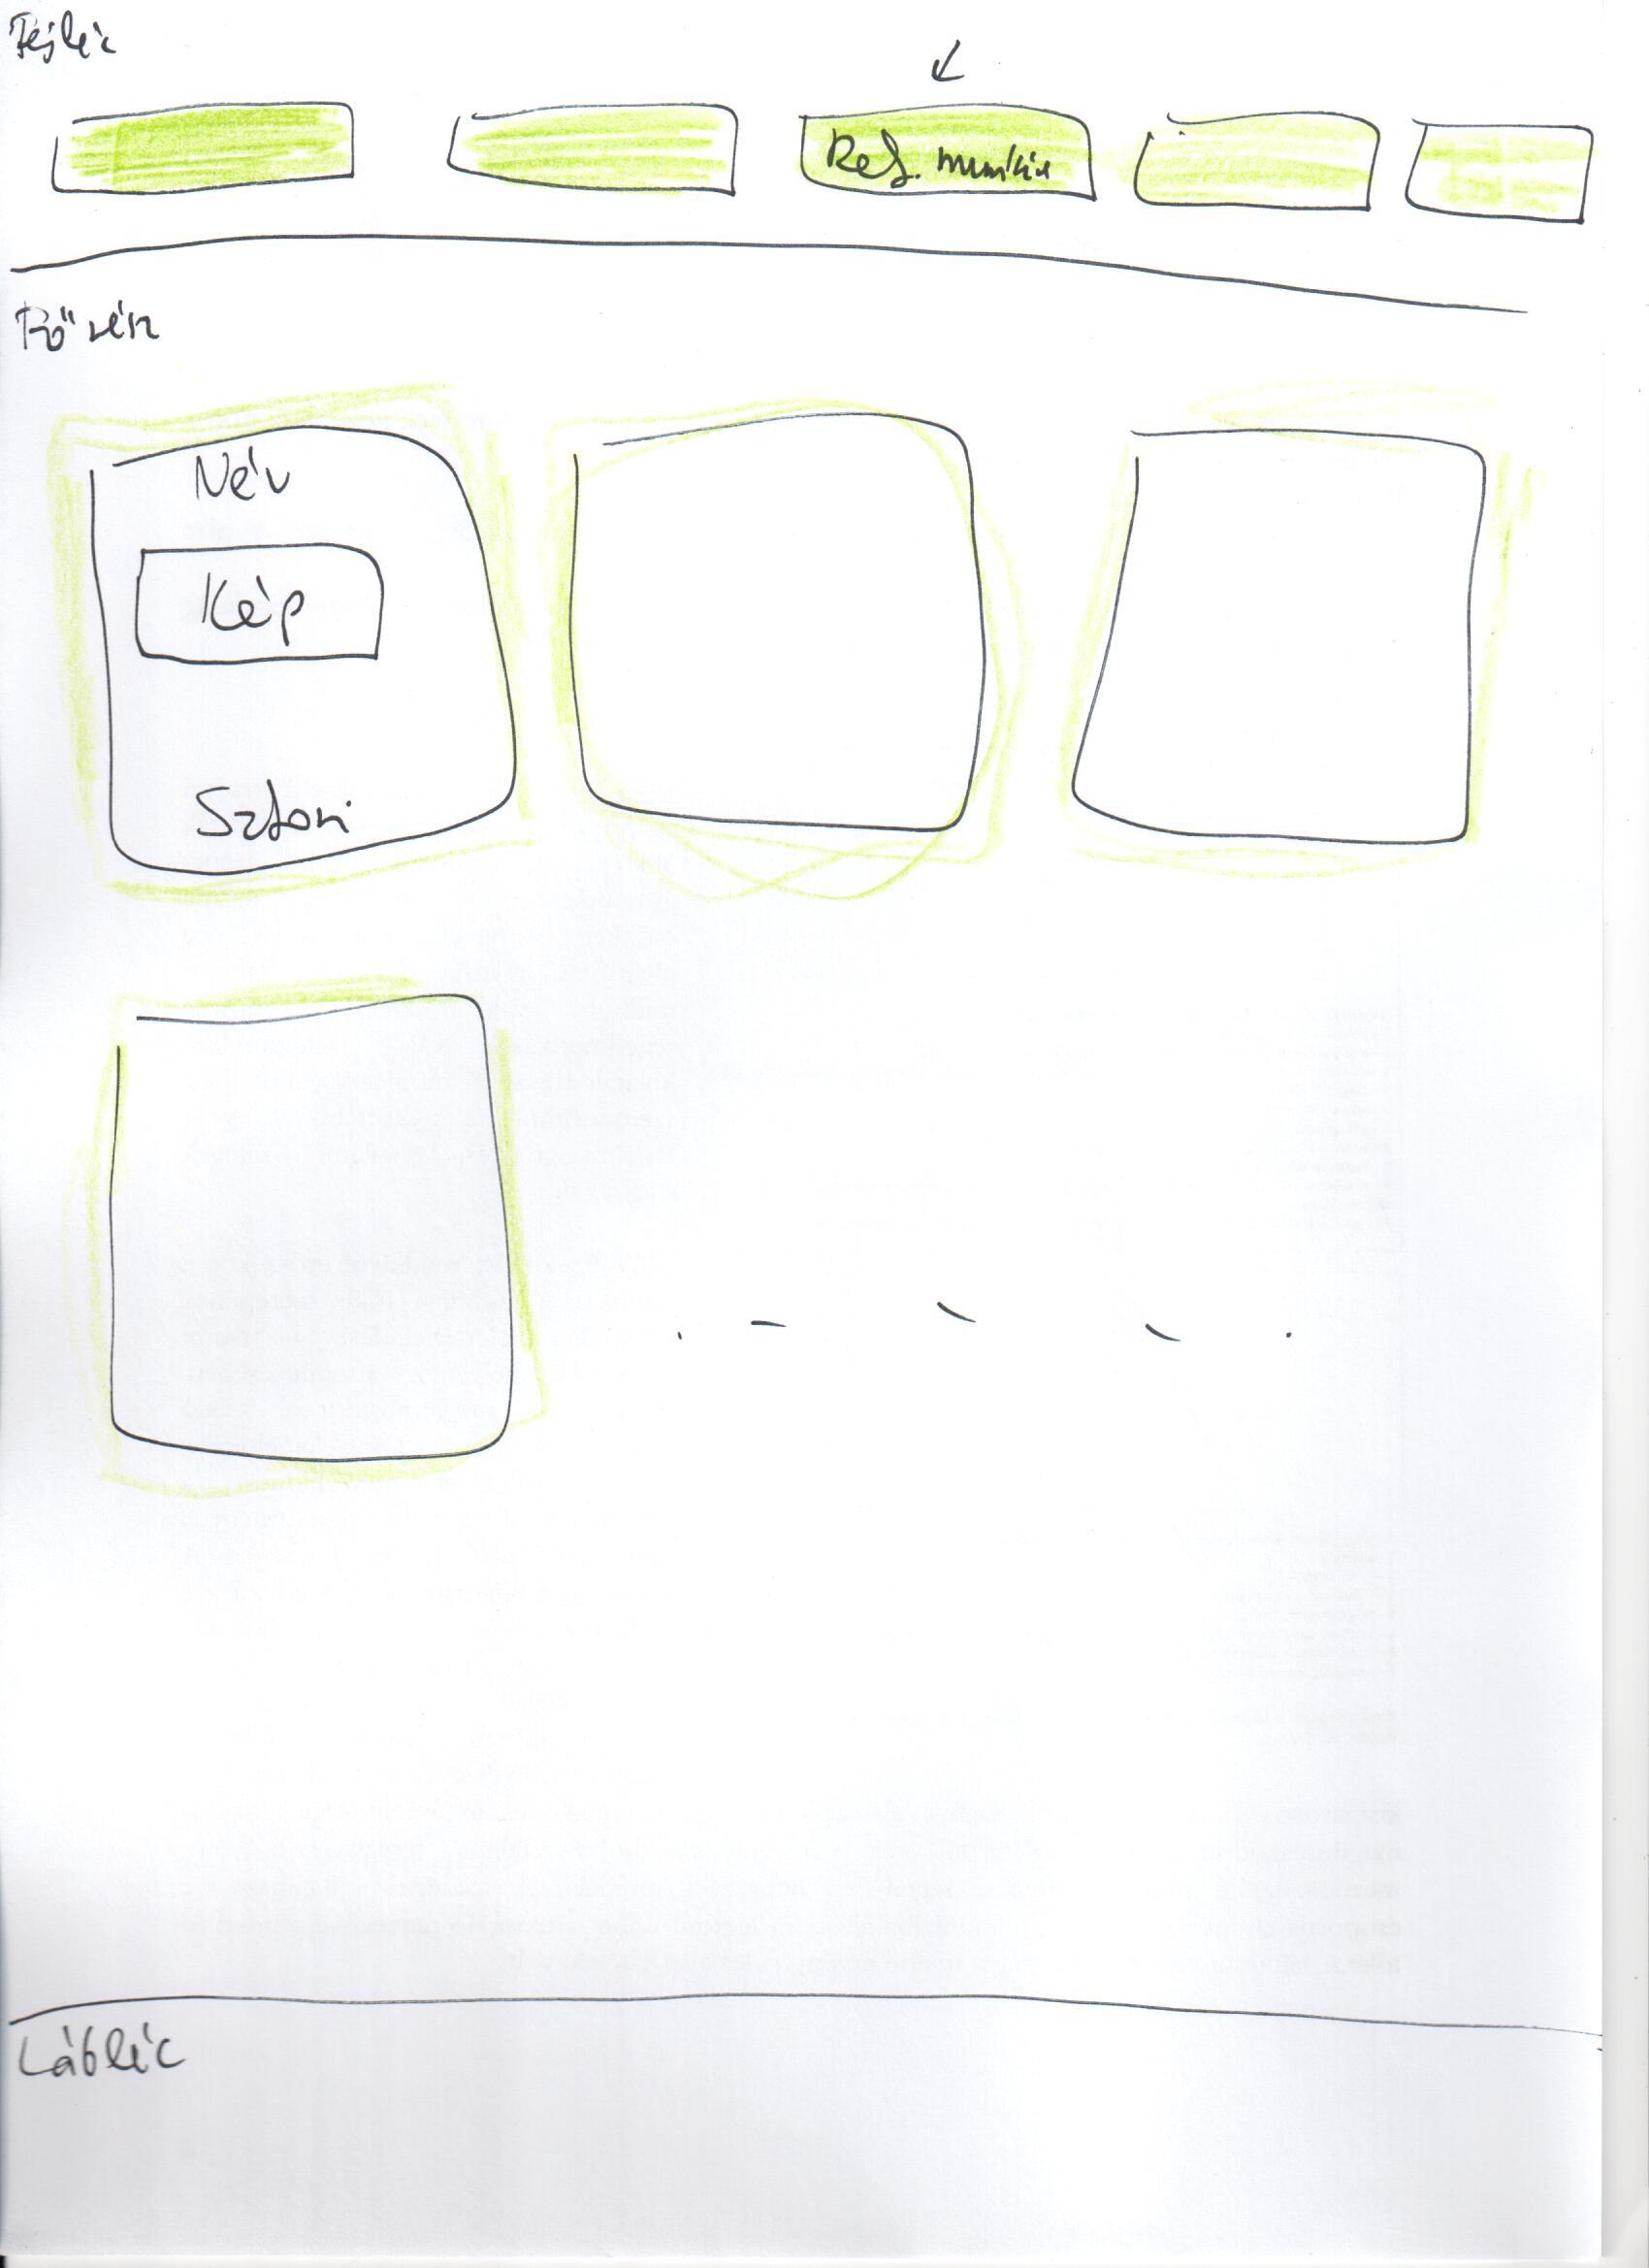 Fejléc
Ref. munkái
Fő rész
Név
Kép
Sztori
Lábléc